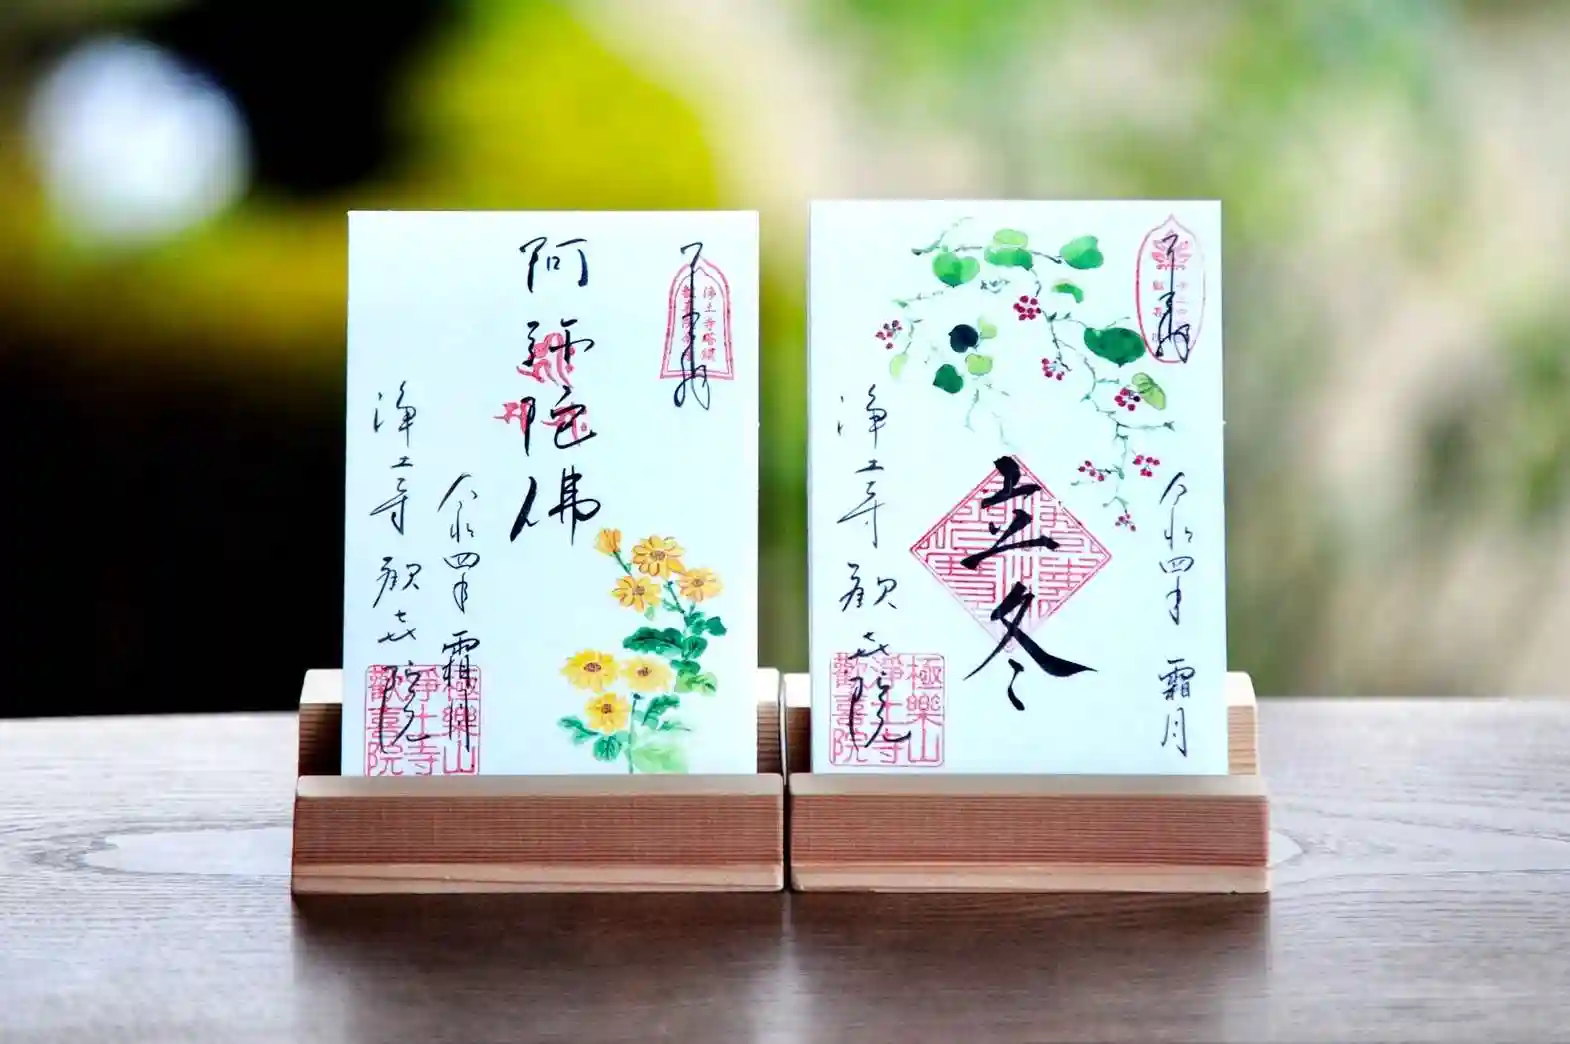 奉拝
浄土寺塔頭
阿弥陀佛
令和四年 霜月
浄土寺 歓喜院
極樂山
浄土寺
歡喜院
奉拝
令和四年 霜月
立冬
浄土寺 歓喜院
極樂山
浄土寺
歡喜院